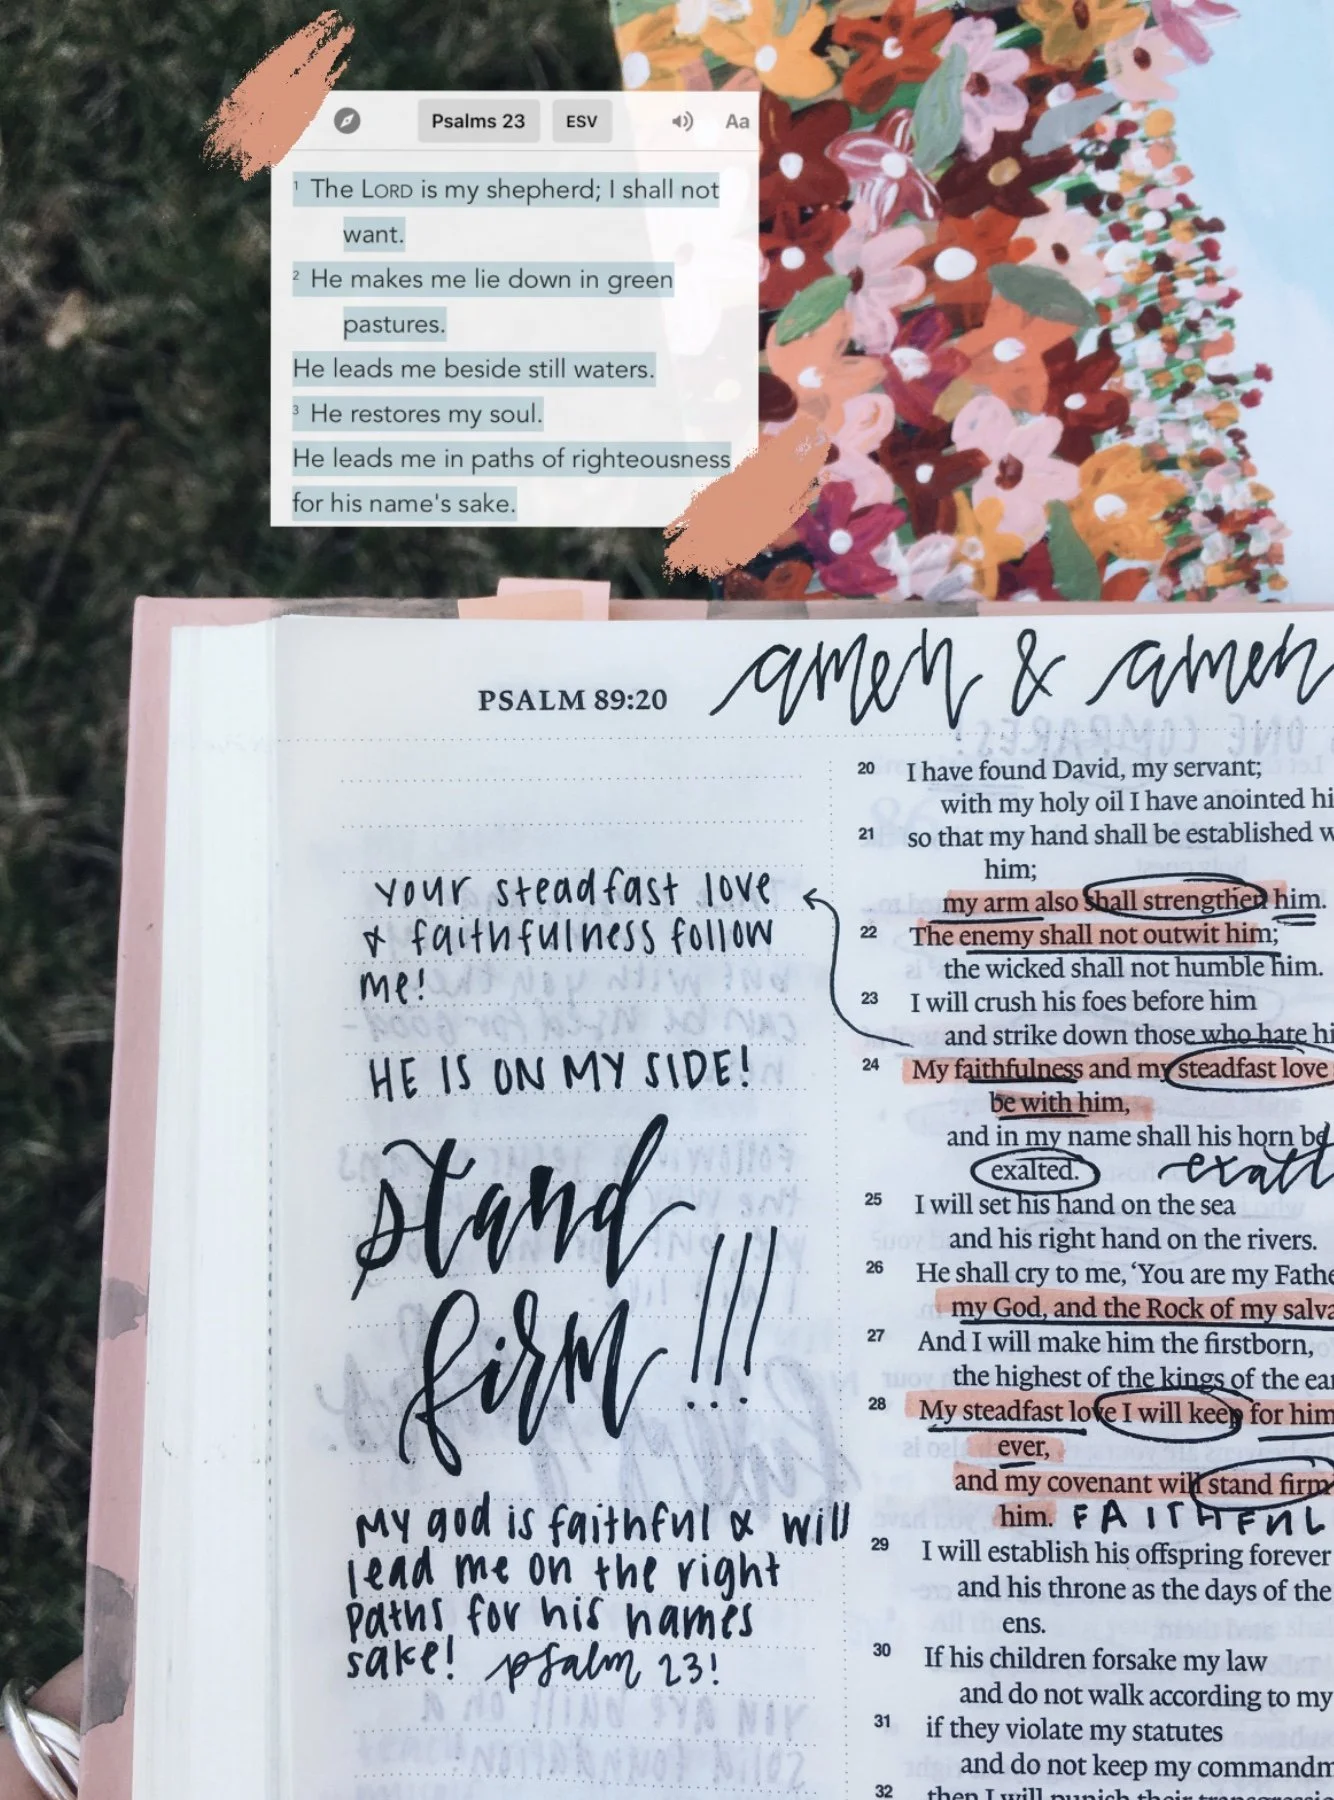 Psalms 23 ESV Aa
1 The LORD is my shepherd; I shall not
want.
2 He makes me lie down in green
pastures.
He leads me beside still waters.
3 He restores my soul.
He leads me in paths of righteousness
for his name's sake.
PSALM 89:20
amen & amen
your steadfast love
& faithfulness follow
me!
HE IS ON MY SIDE!
stand
firm!!!
My god is faithful & will
lead me on the right
paths for his names
sake! psalm 23!
20 I have found David, my servant;
with my holy oil I have anointed hi
21 so that my hand shall be established w
him;
my arm also shall strengthen him.
22 The enemy shall not outwit him;
the wicked shall not humble him.
23 I will crush his foes before him
and strike down those who hate hi
24 My faithfulness and my steadfast love
be with him,
and in my name shall his horn be
exalted. exalt
25 I will set his hand on the sea
and his right hand on the rivers.
26 He shall cry to me, ‘You are my Fathe
my God, and the Rock of my salva
27 And I will make him the firstborn,
the highest of the kings of the ear
28 My steadfast love I will keep for him
ever,
and my covenant will stand firm
him. FAITHFUL
29 I will establish his offspring forever
and his throne as the days of the
ens.
30 If his children forsake my law
and do not walk according to my
31 if they violate my statutes
and do not keep my commandm
32 then I will punish their transgressio